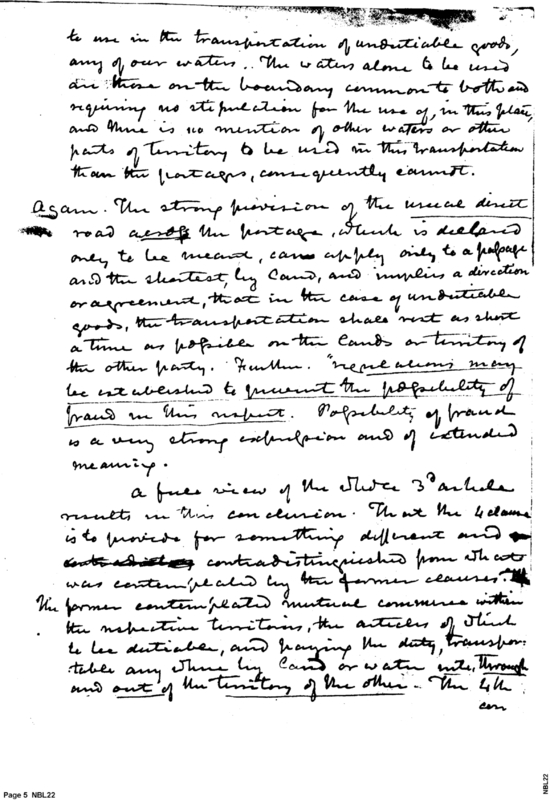 to use in the transportation of undutiable goods,
any of our waters. The waters alone to be used
are those on the boundary common to both and
requiring no stipulation for the use of, in this place,
and there is no mention of other waters or other
parts of territory to be used in this transportation
than the portages, consequently cannot.
Again. The strong provision of the usual direct
road across the portage, which is declared
only to be meant, can apply only to a passage
and the shortest, by land, and implies a direction
or agreement, that in the case of undutiable
goods, the transportation shall rest as short
a time as possible on the lands or territory of
the other party. Further. "regulations may
be established to prevent the possibility of
fraud in this respect. Possibility of fraud
is a very strong expression and of extended
meaning.
A full view of the whole 3d article
results in this conclusion. That the 4 clause
is to provide for something different and
contradistinguished from what
was contemplated by the former clauses.
The former contemplated mutual commerce within
the respective territories, the articles of which
to be dutiable, and paying the duty, transpor-
table any where by land or water into, through
and out of the territory of the other. The 4th
con
Page 5 NBL22
NBL22